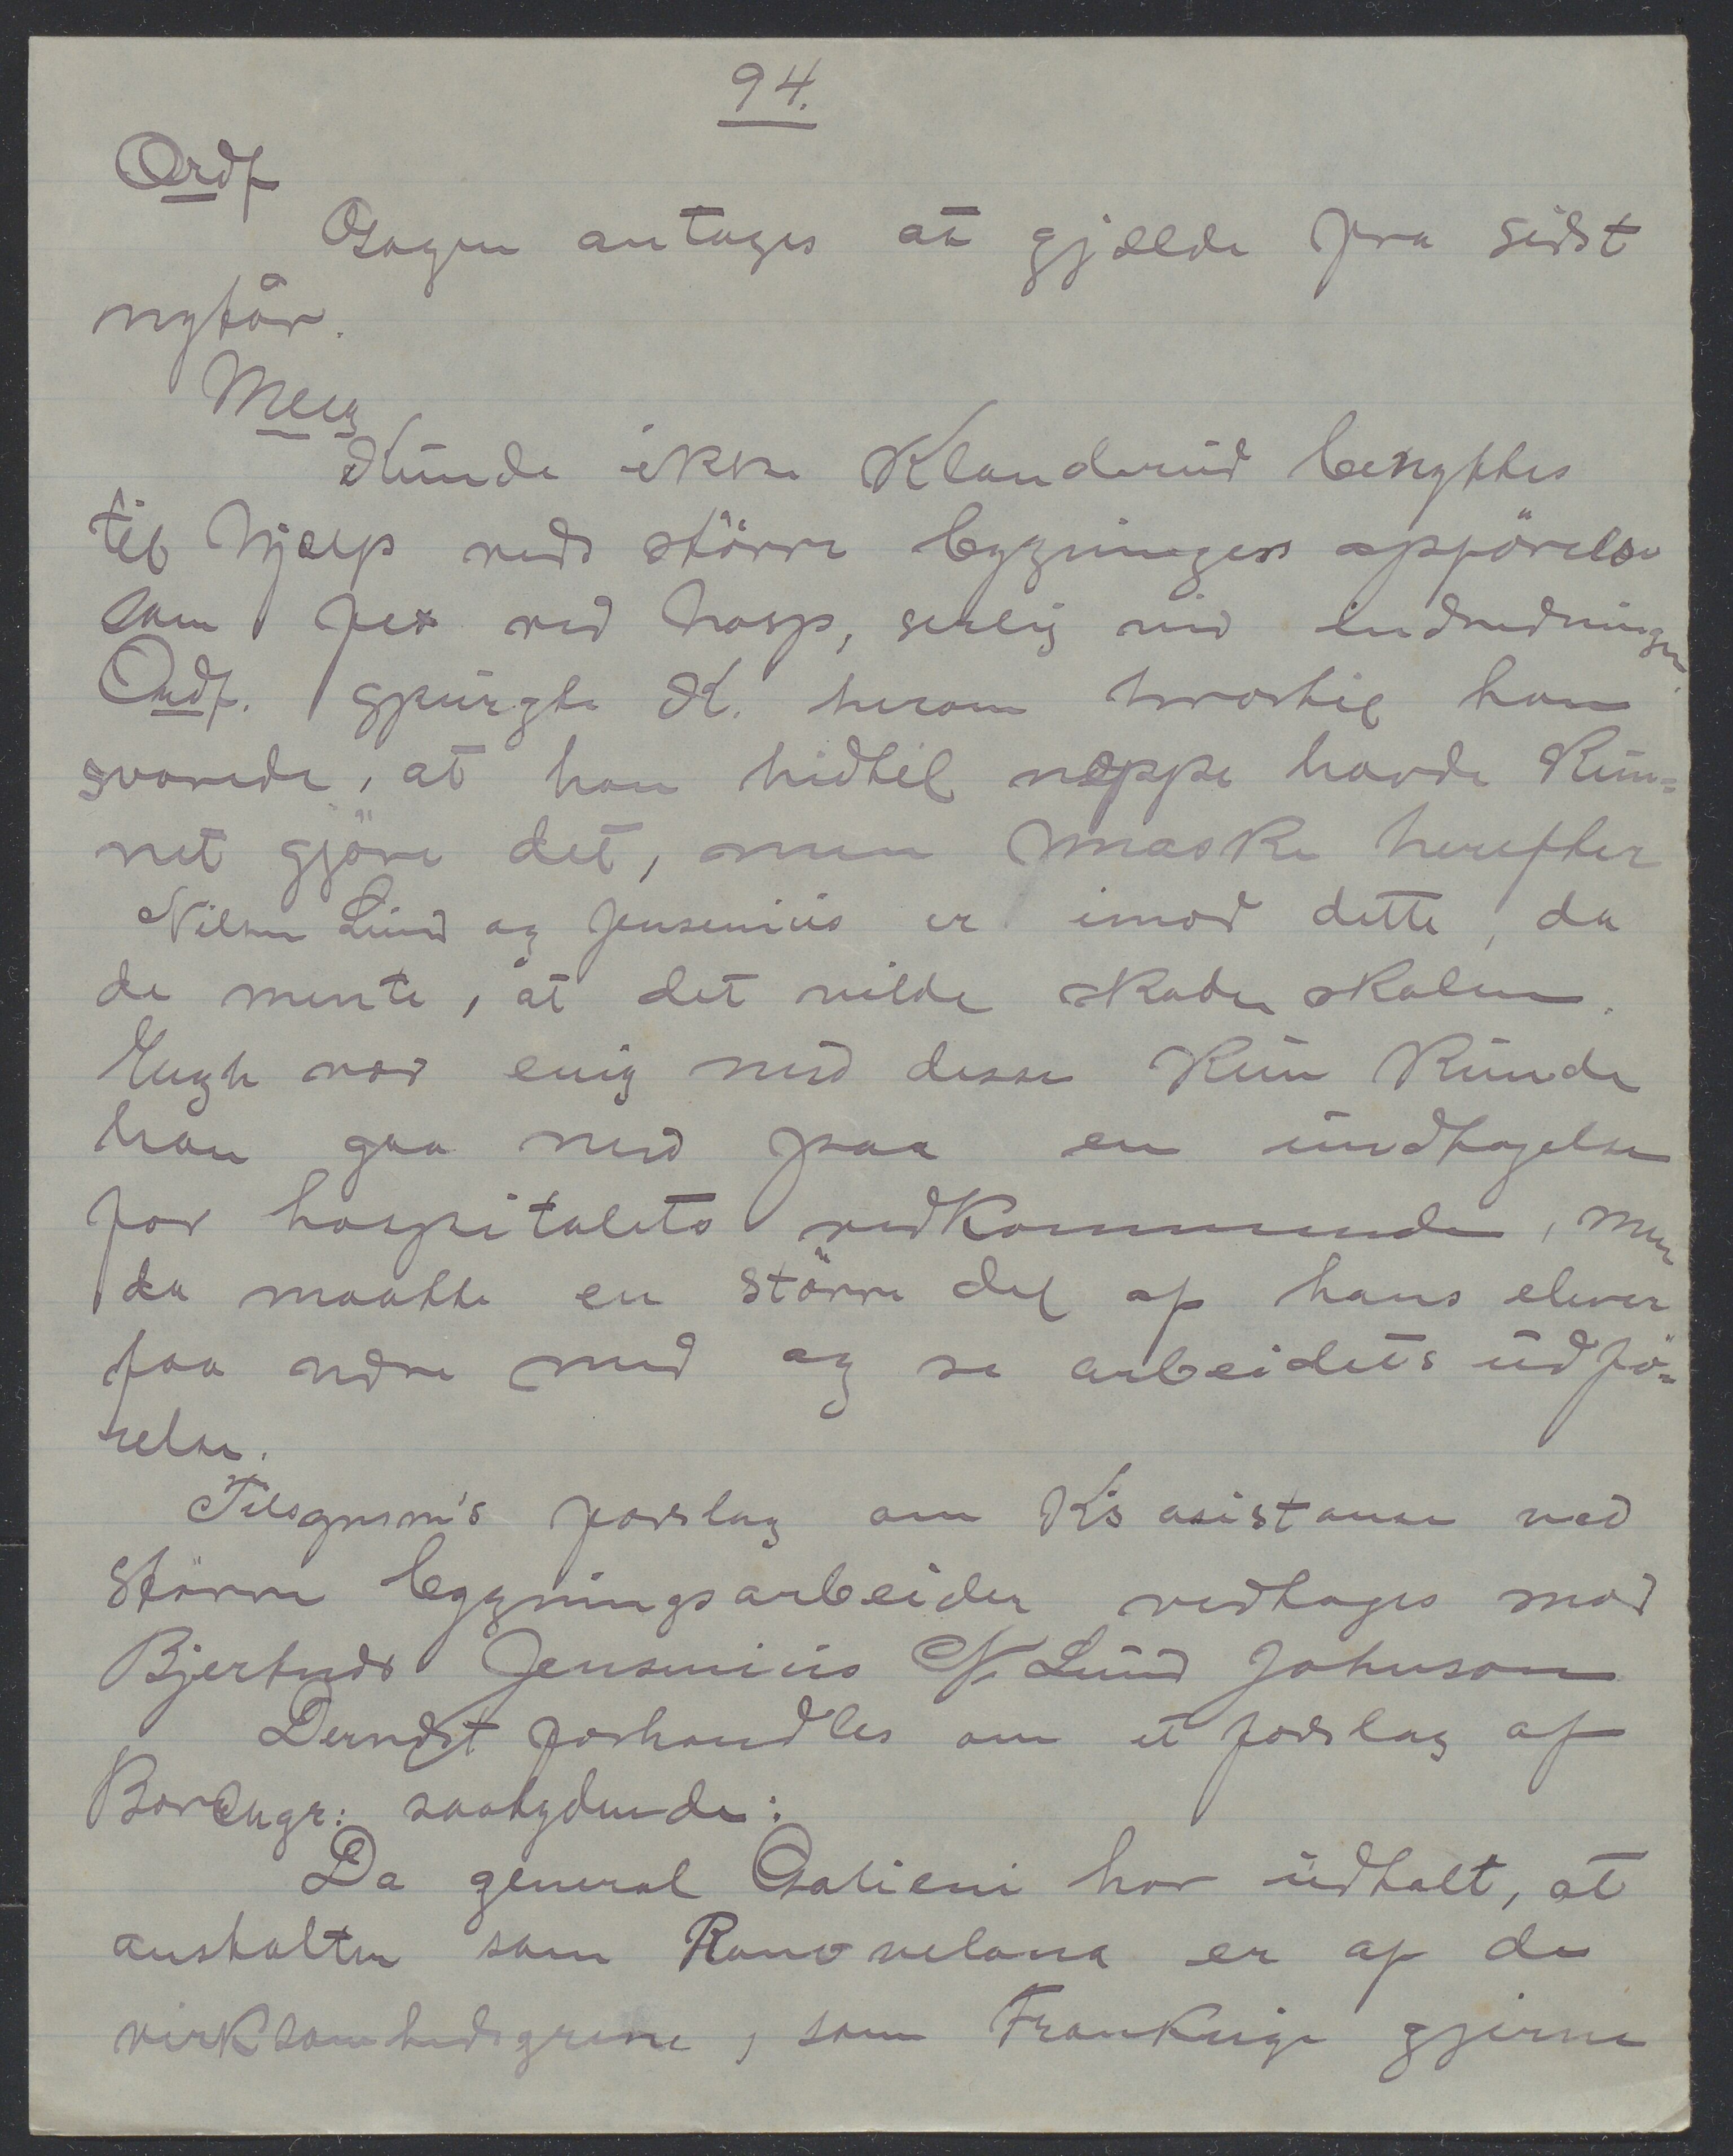 94.
Ordf
Gagen antages at gjælde fra sidst
nytår.
Meeg
Kunde ikke Klanderud benyttes
til hjælp ved större bygningers opförelse
som f ex ved hosp, serlig ved indredningen.
Ordf. spurgte K. herom hvortil han
svarede, at han hidtil neppe havde kun=
net gjöre det, men maske herefter
Nilsen Lund og Jensenius er imod dette, da
de mente, at det vilde skade skolen.
Engh var enig med disse kun kunde
han gaa med paa en undtagelse
for hospitalets vedkommende, men
da maatte en större del af hans elever
faa være med og se arbeidets udfö=
relse.
forslag om K's asistanse ved
större bygningsarbeider vedtages mod
Bjertnæs Jensenius N. Lund Johnson
Dernæst forhandles om et forslag af
Borchgr: saalydende:
Da general Galieni har udtalt, at
anstalter som Ranovelona er af de
virksomhedsgrene, som Frankrige gjerne